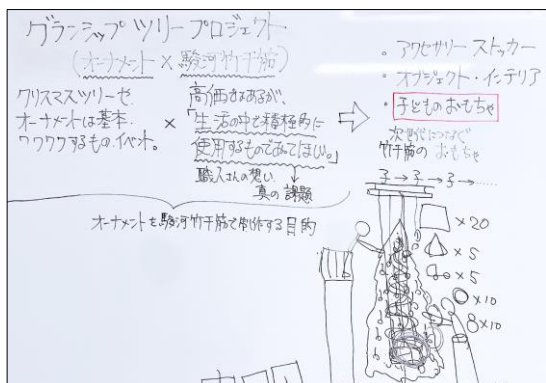 グランシップツリープロジェクト
(オーナメント×駿河竹千筋)
クリスマスツリーや
オーナメントは基本
ワクワクするもの・イベント。
×
高価ではあるが、
「生活の中で積極的に
使用するものであってほしい。」
職人さんの想い
真の課題
オーナメントを駿河竹千筋で制作する目的
・アクセサリーストッカー
・オブジェクト・インテリア
・子どものおもちゃ
次世代につなぐ
竹千筋のおもちゃ
子→子→子→……
×20
×5
×5
×10
8×10